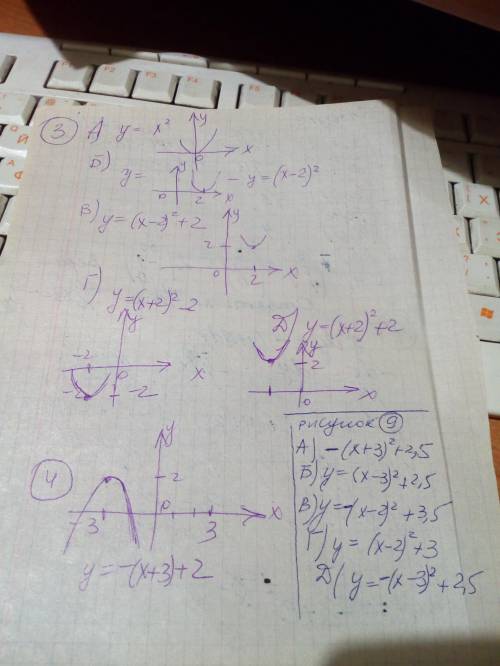 3 А) y = x²
y
0 x
Б) y = y
0 2 x
– y = (x-2)²
В) y = (x-2)² + 2
y
2
0 2 x
Г) y = (x+2)² - 2
y
-2 0 x
-2 -2
Д) y = (x+2)² + 2
y
2
0 x
4
y
2
0
-3 3 x
y = -(x+3) + 2
рисунок 9
А) -(x+3)² + 2,5
Б) y = (x-3)² + 2,5
В) y = -(x-2)² + 3,5
Г) y = (x-2)² + 3
Д) y = -(x-3)² + 2,5